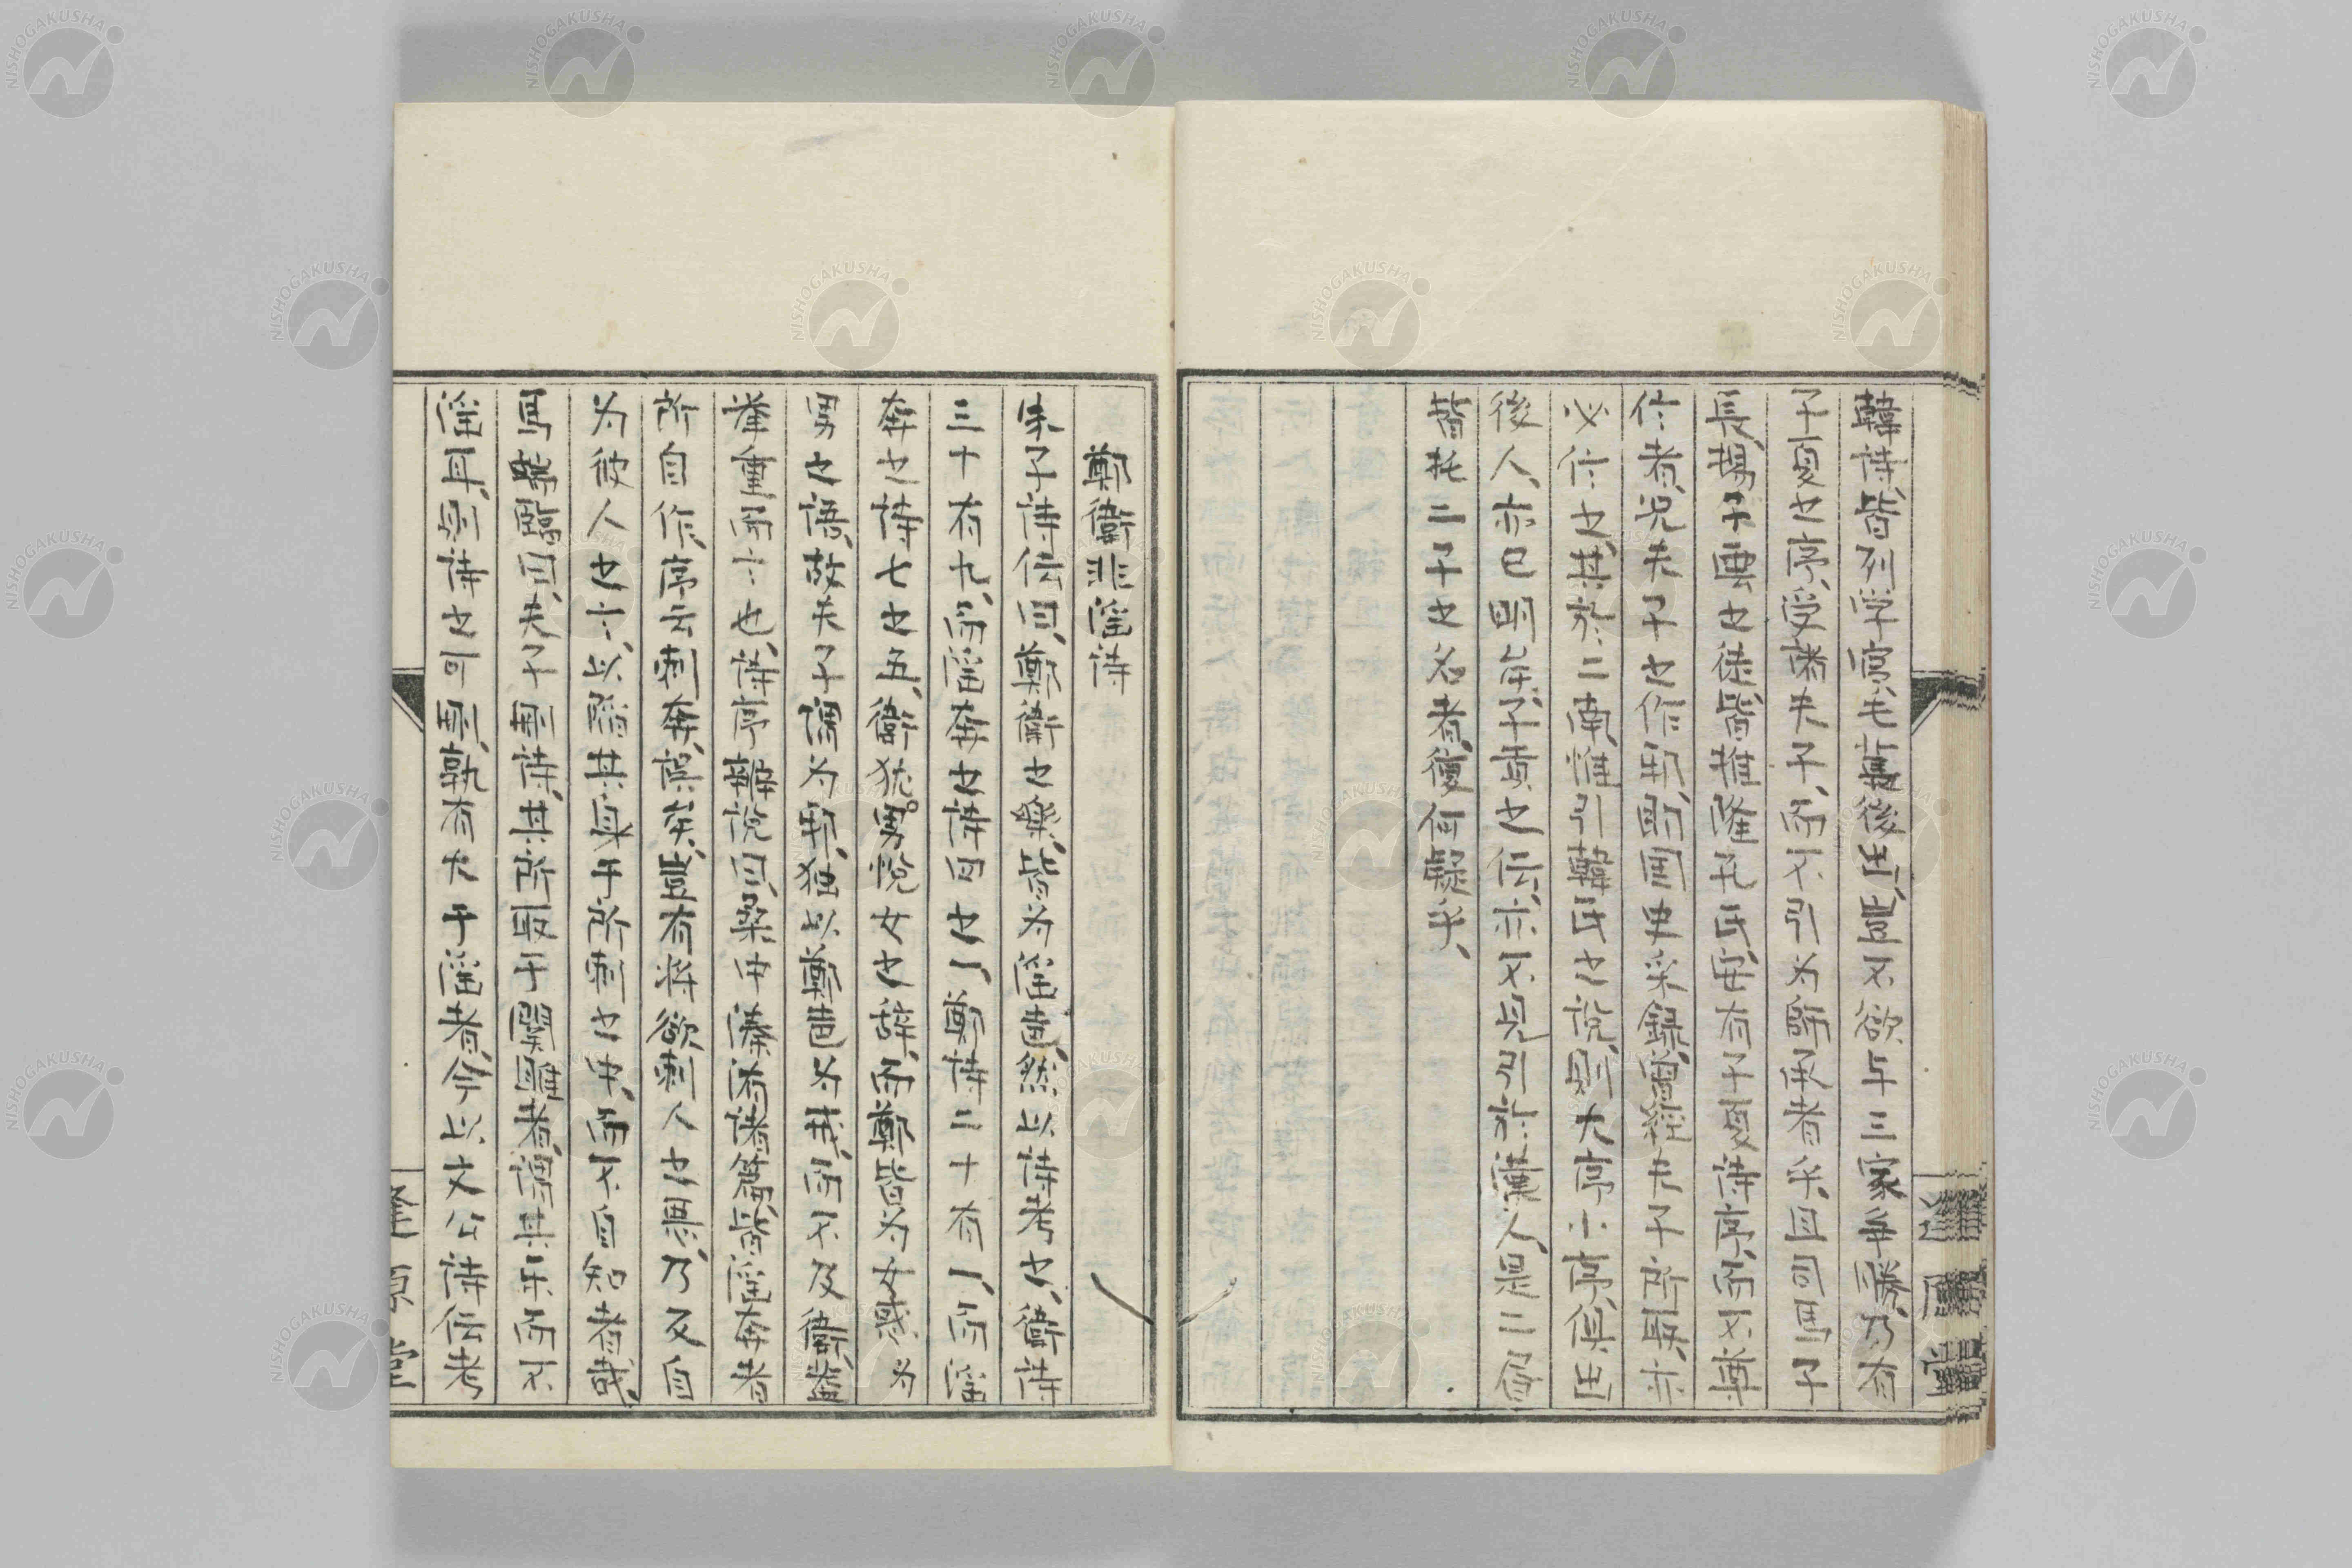 韓詩、皆列学官、毛萇後出、豈不欲与三家争勝、乃有
子夏之序、受諸夫子、而不引為師承者乎、且司馬子
長、揚子雲之徒、皆推隆孔氏、安有子夏詩序、而不尊
信者、況夫子之作
必信之、其於二南、唯引韓氏之説、則大序小序俱出
後人、亦已明矣、子貢之伝、亦不見引於漢人、是二書
皆托二子之名者、復何疑乎、
鄭衛非淫詩
朱子詩伝曰、鄭衛之楽、皆為淫声、然以詩考之、衛詩
三十有九、而淫奔之詩四之一、鄭詩二十有一、而淫
奔之詩七之五、衛猶男悦女之辞、而鄭皆為女惑
男之語、故夫子謂為邦、独以鄭声為戒、而不及衛、蓋
挙重而言也、詩序辨説曰、桑中溱洧諸篇、皆淫奔者
所自作、序云刺奔、誤矣、豈有将欲刺人之悪、乃反自
為彼人之言、以陥其身于所刺之中、而不自知者哉、
馬端臨曰、夫子刪詩、其所取于関雎者、謂其楽而不
淫耳、則詩之可刪、孰有大于淫者、今以文公詩伝考
NISHOGAKUSHA